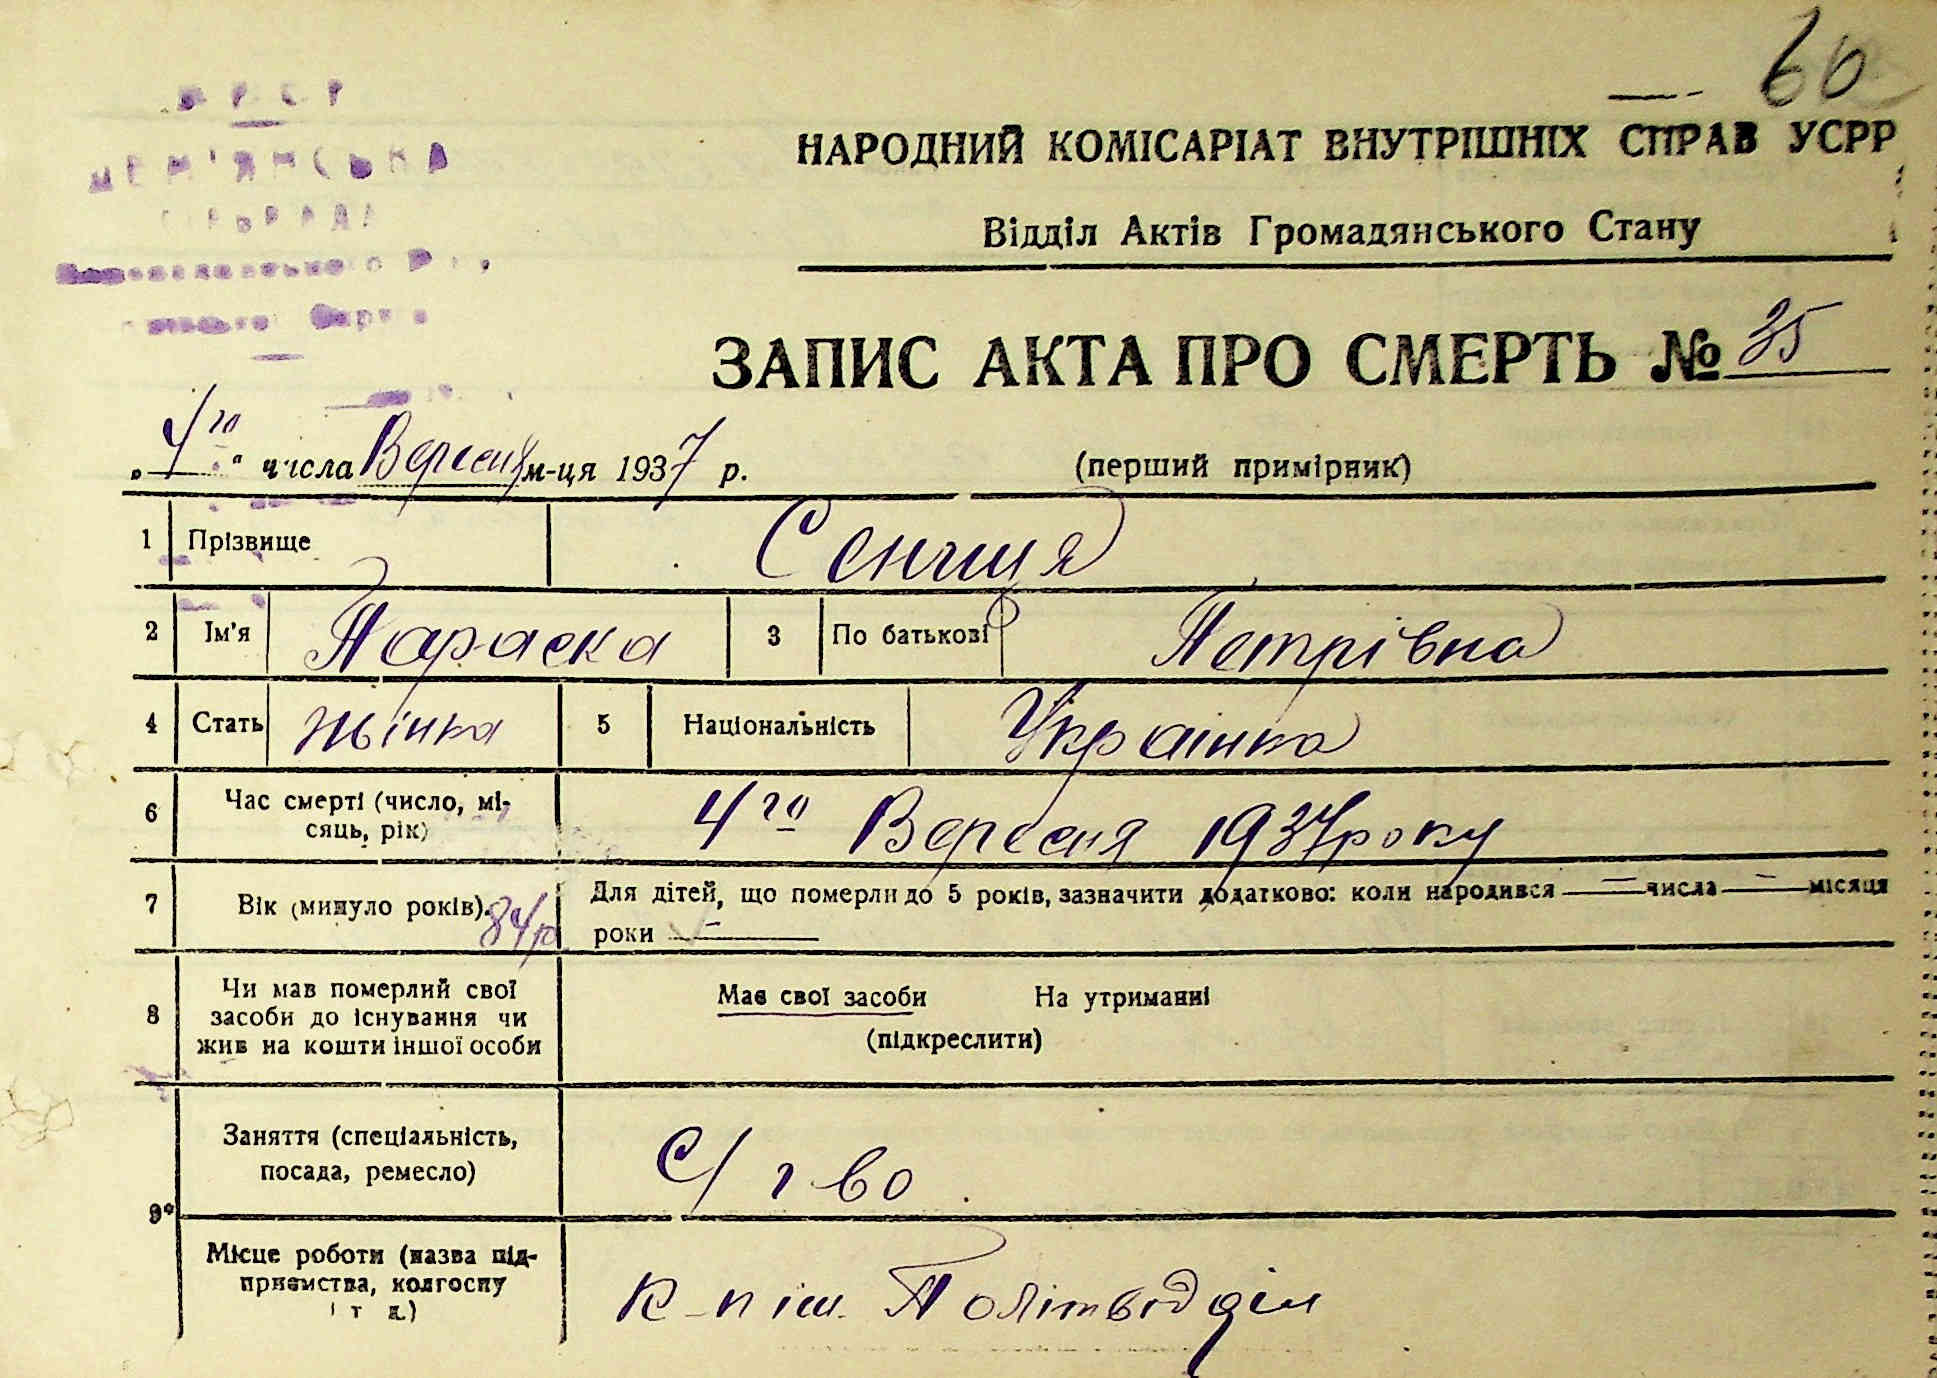 60
НАРОДНИЙ КОМІСАРІАТ ВНУТРІШНІХ СПРАВ УСРР
Відділ Актів Громадянського Стану
ЗАПИС АКТА ПРО СМЕРТЬ № 35
„ 4го “ числа Вересня м-ця 1937 р.
(перший примірник)
1 Прізвище Сенчиця
2 Ім'я Параска 3 По батькові Петрівна
4 Стать жінка 5 Національність Українка
6 Час смерті (число, мі-
сяць, рік) 4го Вересня 1937 року
7 Вік (минуло років). 84 р Для дітей, що померли до 5 років, зазначити додатково: коли народився — числа — місяця
роки —
8 Чи мав померлий свої
засоби до існування чи
жив на кошти іншої особи
Має свої засоби На утриманні
(підкреслити)
9 Заняття (спеціальність,
посада, ремесло) С/г-во
Місце роботи (назва під-
приємства, колгоспу
і т д.) к-п ім. Політвідділ